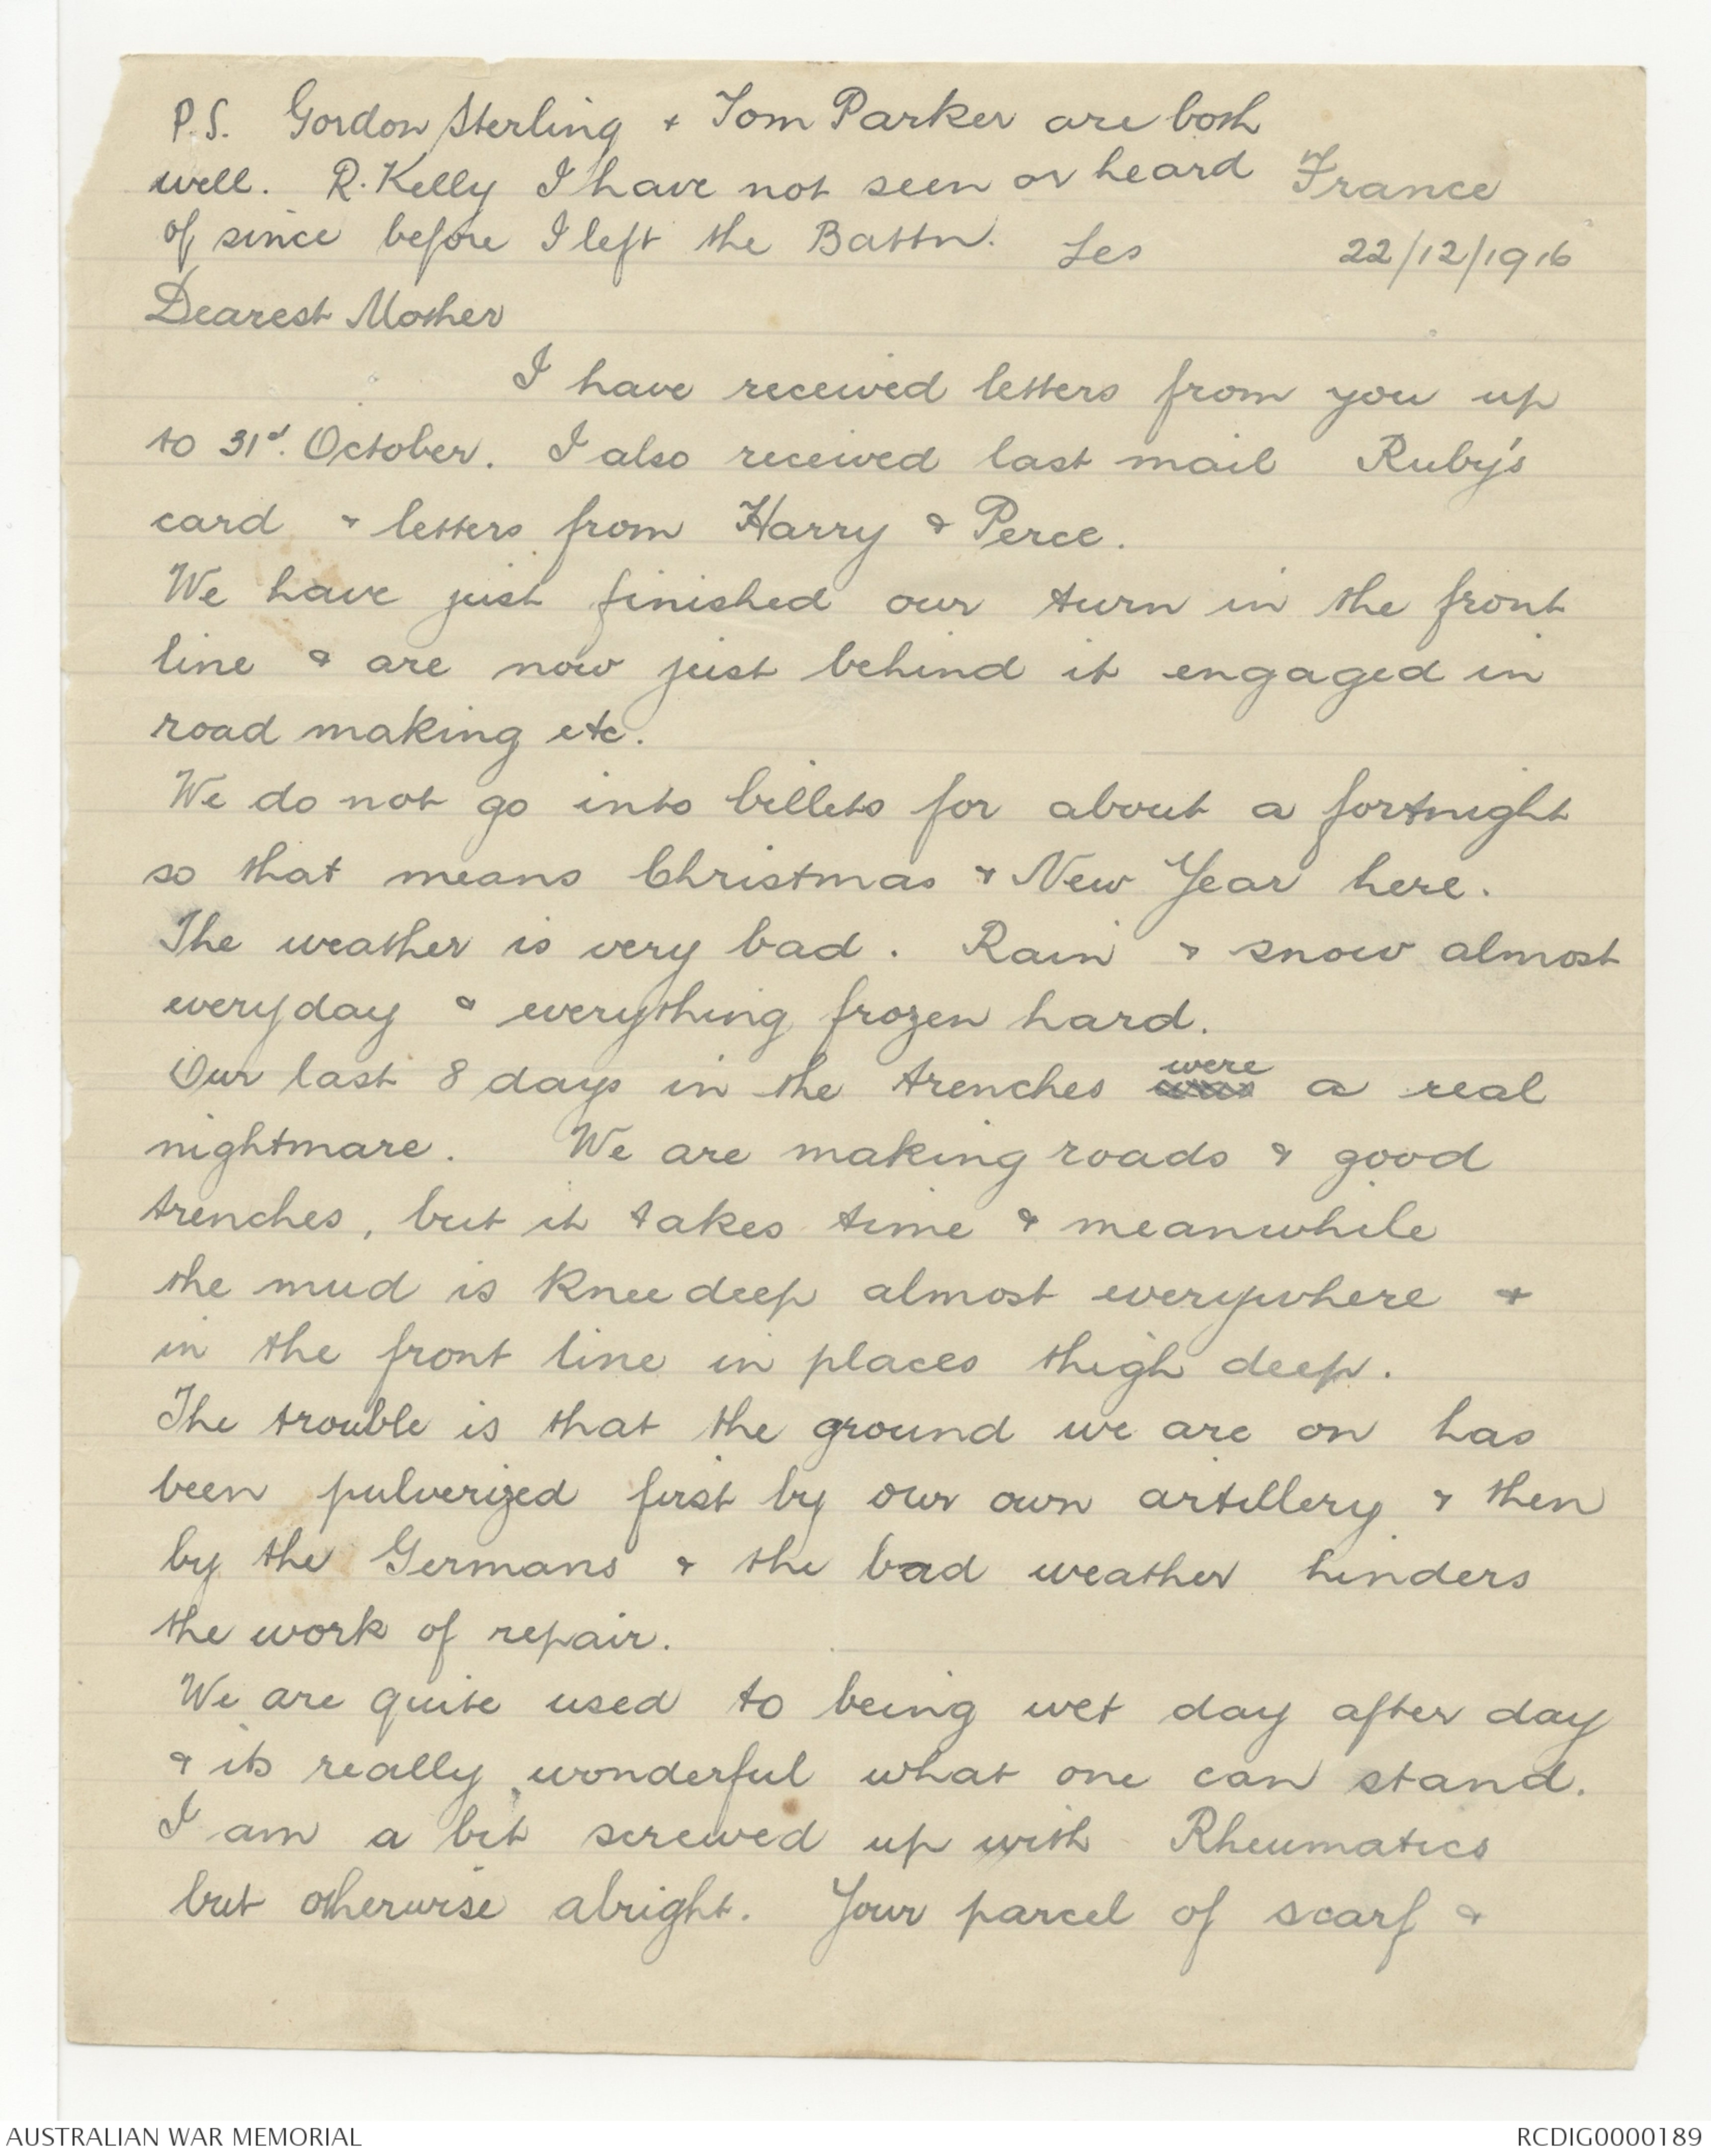 P.S. Gordon Sterling + Tom Parker are both
well. R. Kelly I have not seen or heard
of since before I left the Battn. Les
France
22/12/1916
Dearest Mother
I have received letters from you up
to 31st. October. I also received last mail Ruby's
card & letters from Harry & Perce.
We have just finished our turn in the front
line & are now just behind it engaged in
road making etc.
We do not go into billets for about a fortnight
so that means Christmas & New Year here.
The weather is very bad. Rain & snow almost
everyday & everything frozen hard.
Our last 8 days in the trenches were a real
nightmare. We are making roads & good
trenches, but it takes time & meanwhile
the mud is knee deep almost everywhere +
in the front line in places thigh deep.
The trouble is that the ground we are on has
been pulverized first by our own artillery & then
by the Germans & the bad weather hinders
the work of repair.
We are quite used to being wet day after day
& its really wonderful what one can stand.
I am a bit screwed up with Rheumatics
but otherwise alright. Your parcel of scarf &
AUSTRALIAN WAR MEMORIAL
RCDIG0000189